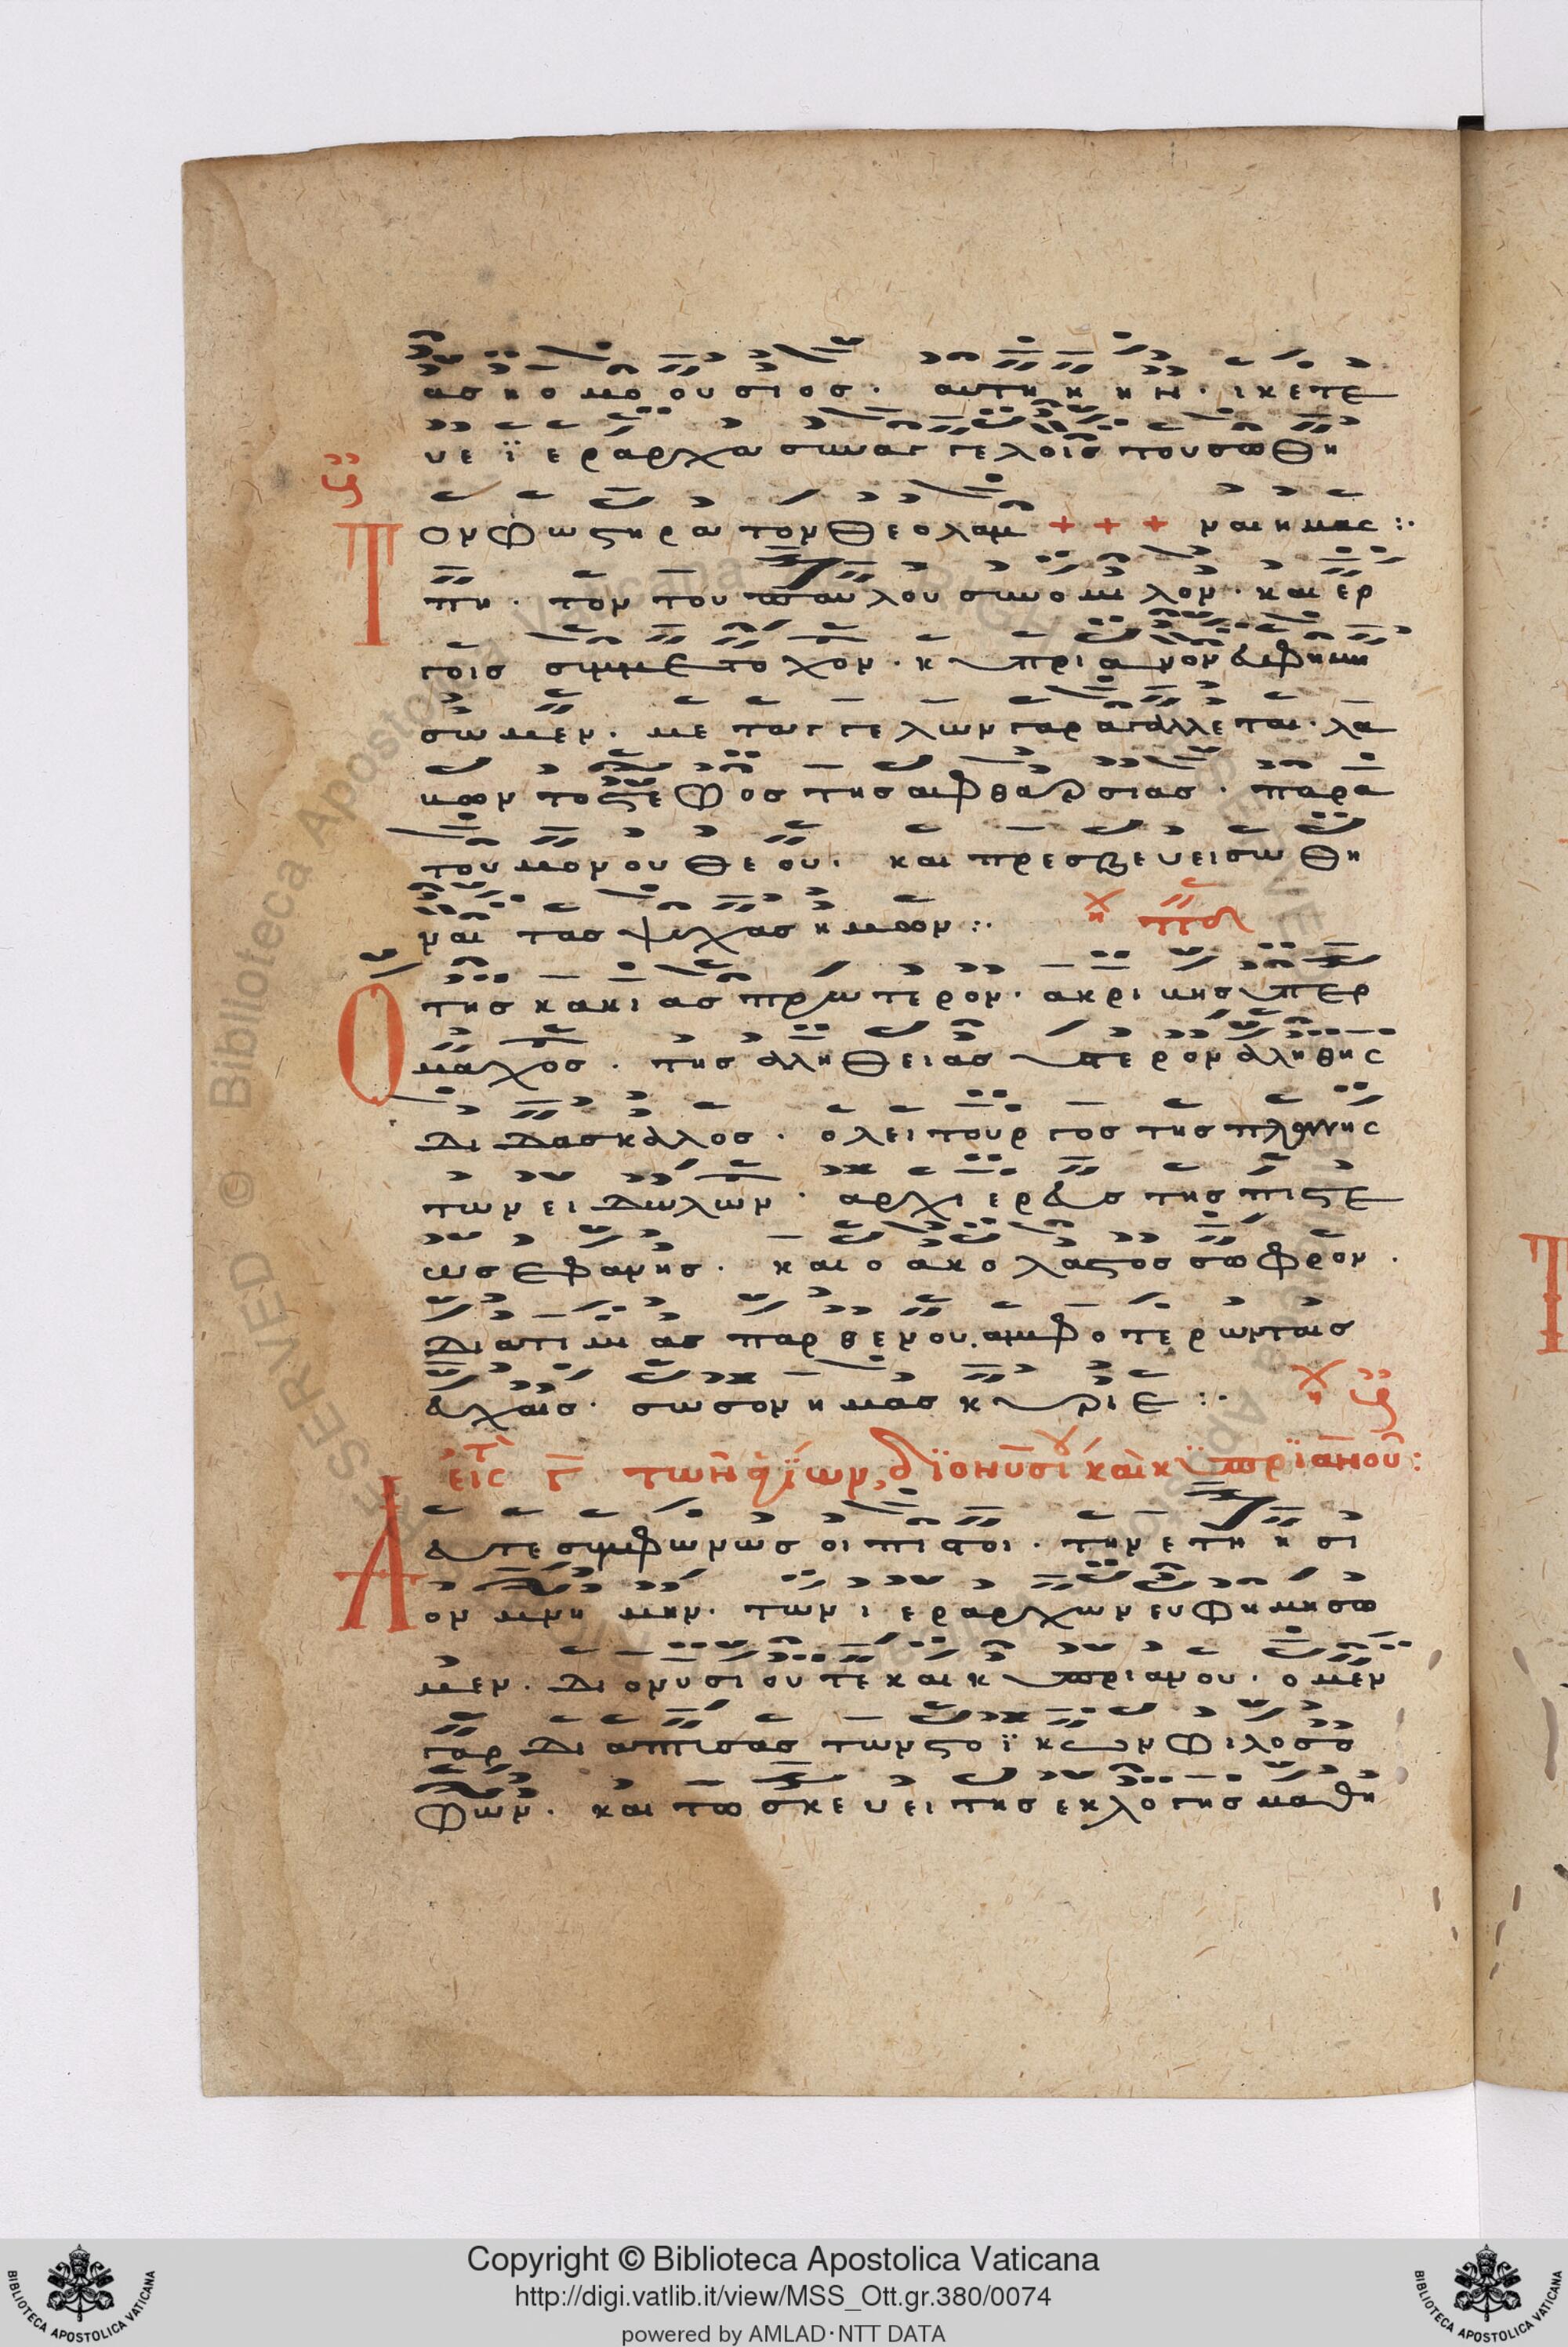 ας η ομοουσιος. αυτη η νη. ικετε
υε ϊεραρχα συν αγγελοις του σωθη
Τον φωστηρα τον θεολαμ + + + ναι ημας :.
πη. τον του παυλου συνομιλον. και ερ
γοις συμμετοχον. κυπριανον ευφημη
σωμεν. μετ αγγελων γαρ αγαλλεται. λα
κων το στεφος της αφθαρσιας. παρα
του μονου θεου. και πρεσβευει σωθη
ναι τας ψυχας ημων :.
Ο της κακιας πρωτερον. ακριμης υπερ
μαχος. της αληθειας υστερον αληθης
διδασκαλος. ο λειτουργος της πλανης
των ειδωλων. αρχιερευς της πιστε
ως εφανης. και ο ακολαστος σωφρον.
δια τιμιας παρθενου. αμφοτερων ταις
ευχαις. σωσον ημας κυριε :.
εις τ γ των αγιων, διονυσιου και κυπριανου:
Αευτε συμφωνως οι πιστοι. την ετησι
ον μνημην. των ιεραρχων ευφημησω
μεν. διονυσιου τε και κυπριανου. ο μεν
γαρ διαπτυσας των στοϊκων φιλοσο
φων. και τω σκευει της εκλογης μαθη
Copyright © Biblioteca Apostolica Vaticana
http://digi.vatlib.it/view/MSS_Ott.gr.380/0074
powered by AMLAD·NTT DATA
BIBLIOTECA APOSTOLICA VATICANA
BIBLIOTECA APOSTOLICA VATICANA